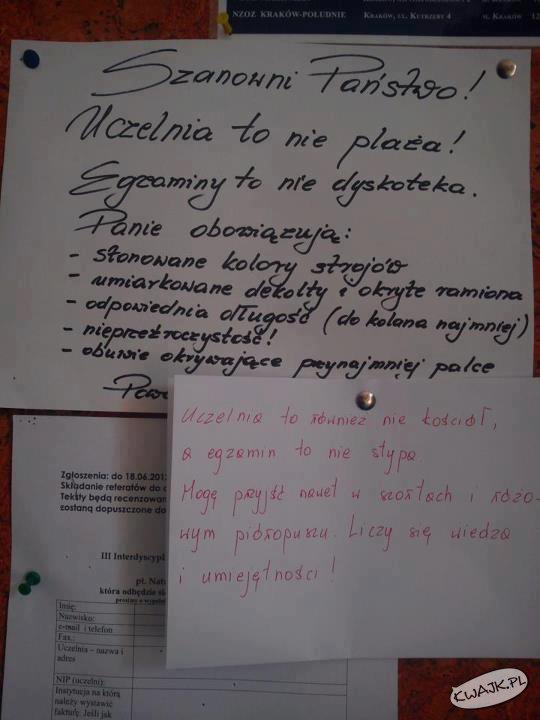 NZOZ KRAKÓW-POŁUDNIE KRAKÓW, UL. KUTRZEBY 4
Szanowni Państwo!
Uczelnia to nie plaża!
Egzaminy to nie dyskoteka.
Panie obowiązują:
- stonowane kolory strojów
- umiarkowane dekolty i okryte ramiona
- odpowiednia długość (do kolana najmniej)
- nieprzeźroczystość!
- obuwie okrywające przynajmniej palce
Uczelnia to również nie kościół,
a egzamin to nie stypa.
Mogę przyjść nawet w szortach i różo-
wym pióropuszu. Liczy się wiedza
i umiejętności!
Zgłoszenia: do 18.06.201
Składanie referatów do
Teksty będą recenzowan
zostaną dopuszczone do
III Interdyscypl
pt. Natu
która odbędzie
Imię:
Nazwisko:
e-mail i telefon
Fax.:
Uczelnia – nazwa i
adres
NIP (uczelni):
Instytucja na którą
należy wystawić
fakturę: Jeśli jak
KWAJK.PL